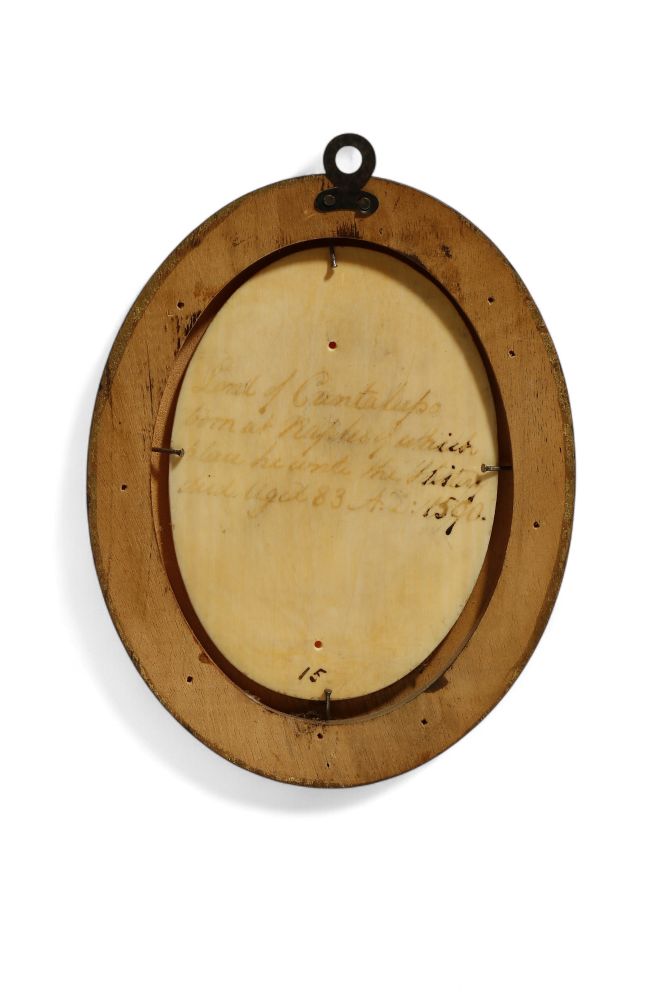 Lord of Cantalupo
born at Naples of which
place he wrote the Histor
died Aged 83 A.D: 1590.
15